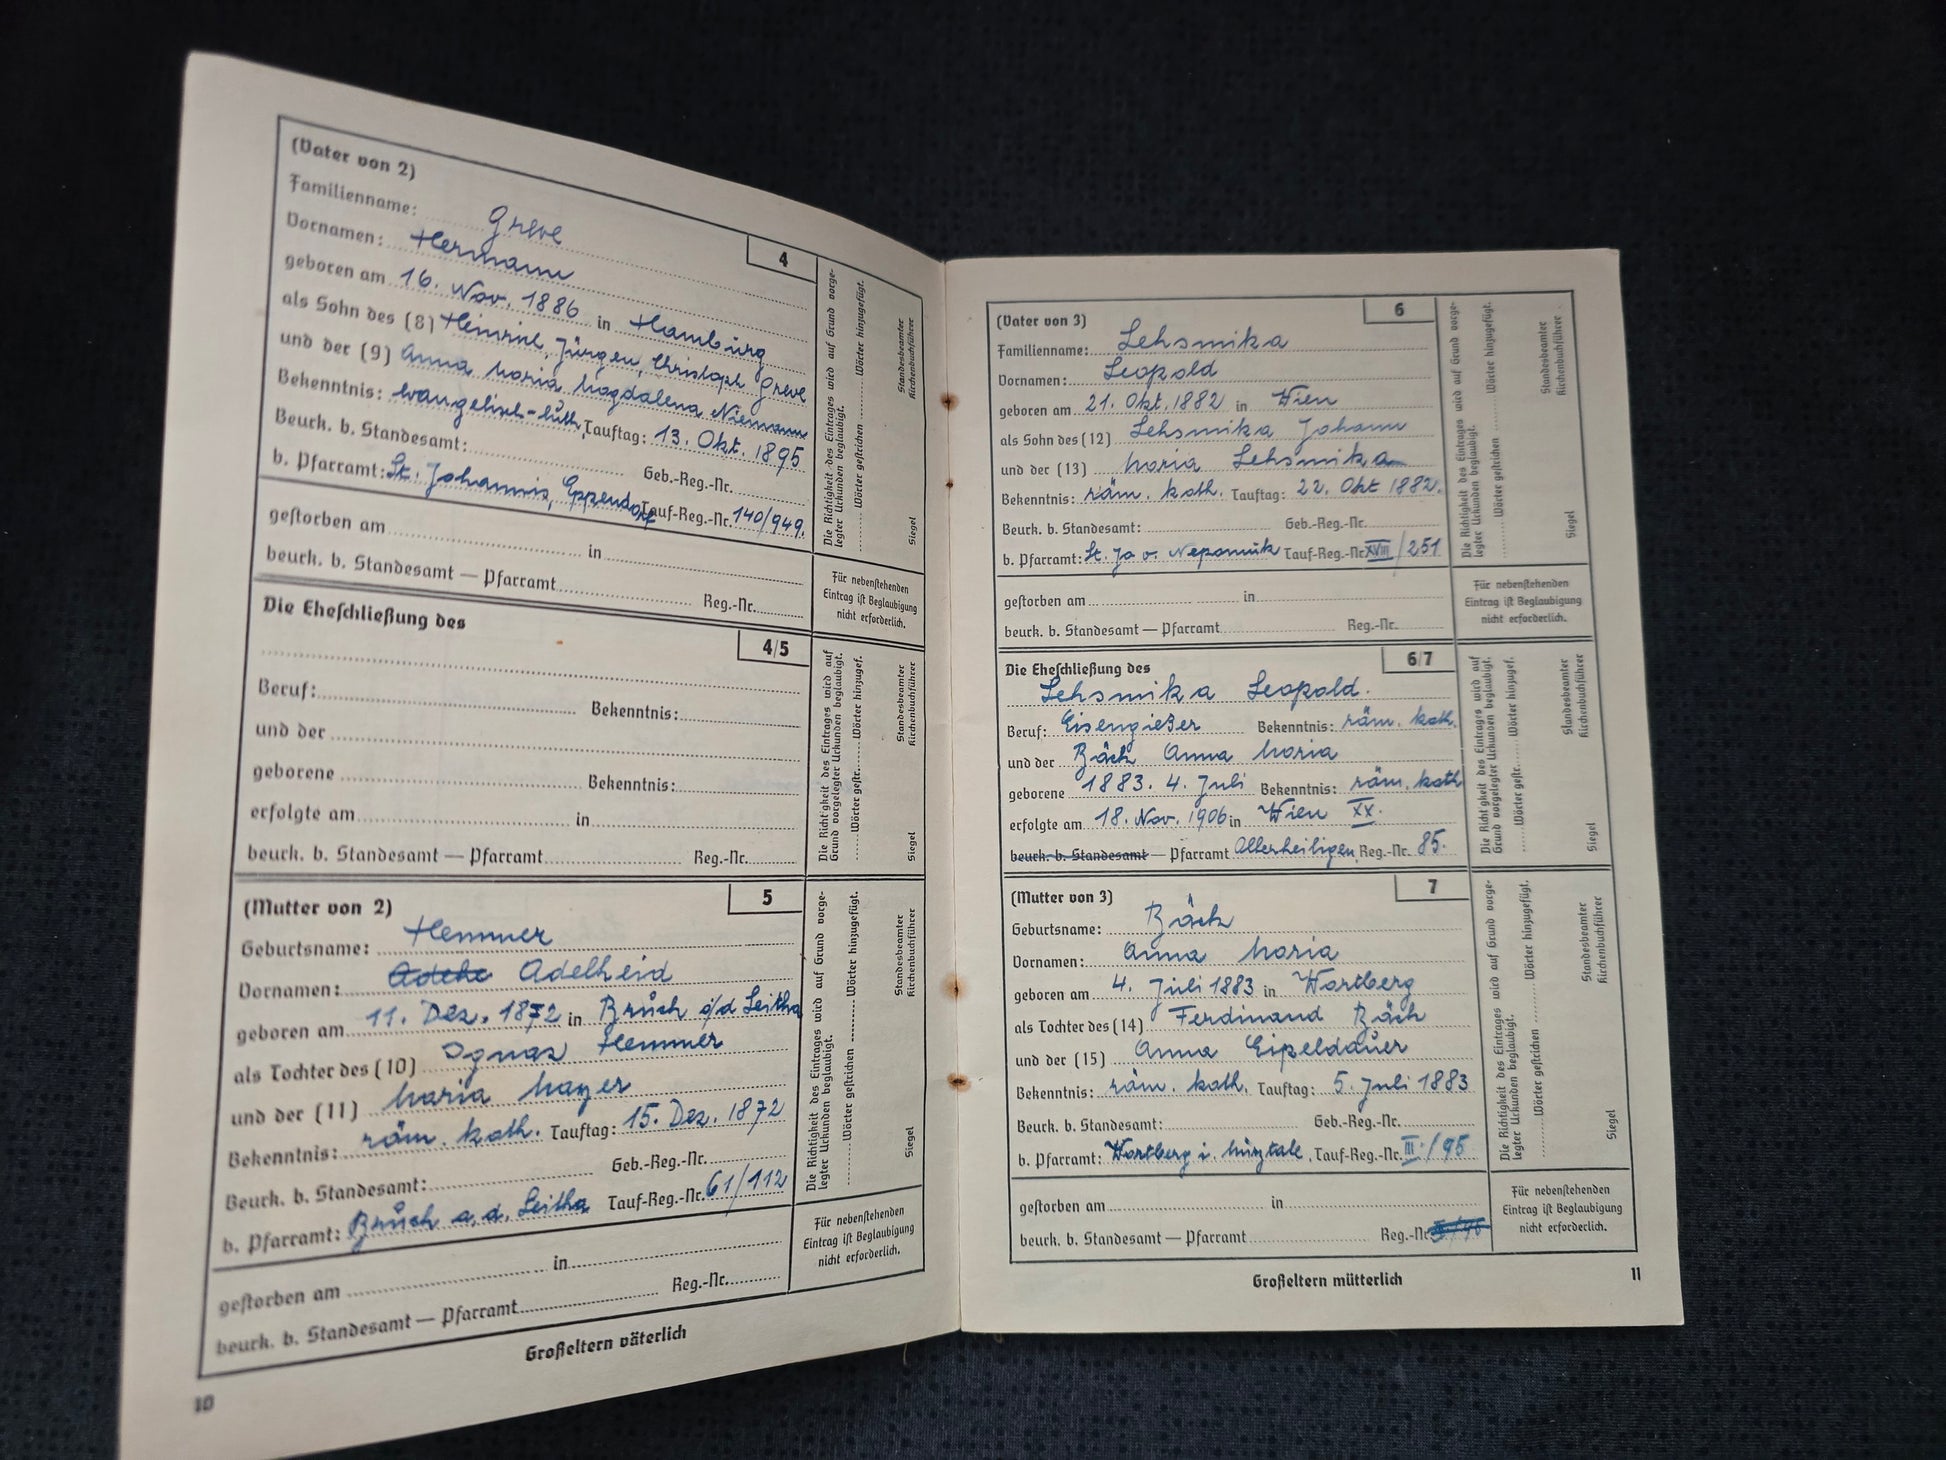 (Vater von 2)
4
Familienname: Greve
Vornamen: Hermann
geboren am 16. Nov. 1886 in Hamburg
als Sohn des (8) Heinrich, Jürgen, Christoph Greve
und der (9) Anna Maria Magdalena Niemann
Bekenntnis: evangelisch-luth. Tauftag: 13. Okt. 1895
Beurk. b. Standesamt: Geb.-Reg.-Nr.
b. Pfarramt: St. Johannis, Eppendorf Tauf-Reg.-Nr. 140/949.
gestorben am in
beurk. b. Standesamt — Pfarramt Reg.-Nr.
Die Richtigkeit des Eintrages wird auf Grund vorge-
legter Urkunden beglaubigt.
Wörter gestrichen Wörter hinzugefügt.
Standesbeamter
Kirchenbuchführer
Siegel
Für nebenstehenden
Eintrag ist Beglaubigung
nicht erforderlich.
Die Eheschließung des
4/5
Beruf: Bekenntnis:
und der
geborene Bekenntnis:
erfolgte am in
beurk. b. Standesamt — Pfarramt Reg.-Nr.
Die Richtigkeit des Eintrages wird auf
Grund vorgelegter Urkunden beglaubigt.
Wörter gestr. Wörter hinzugef.
Standesbeamter
Kirchenbuchführer
Siegel
(Mutter von 2)
5
Geburtsname: Hemmer
Vornamen: Adelheid
geboren am 11. Dez. 1872 in Bruch a/d Leitha
als Tochter des (10) Ignaz Hemmer
und der (11) Maria Mayer
Bekenntnis: röm. kath. Tauftag: 15. Dez. 1872
Beurk. b. Standesamt: Geb.-Reg.-Nr.
b. Pfarramt: Bruch a. d. Leitha Tauf-Reg.-Nr. 61/112
gestorben am in
beurk. b. Standesamt — Pfarramt Reg.-Nr.
Die Richtigkeit des Eintrages wird auf Grund vorge-
legter Urkunden beglaubigt.
Wörter gestrichen Wörter hinzugefügt.
Standesbeamter
Kirchenbuchführer
Siegel
Für nebenstehenden
Eintrag ist Beglaubigung
nicht erforderlich.
Großeltern väterlich
10
(Vater von 3)
6
Familienname: Lehsmika
Vornamen: Leopold
geboren am 21. Okt. 1882 in Wien
als Sohn des (12) Lehsmika Johann
und der (13) Maria Lehsmika
Bekenntnis: röm. kath. Tauftag: 22. Okt 1882.
Beurk. b. Standesamt: Geb.-Reg.-Nr.
b. Pfarramt: St. Jo v. Nepomuk Tauf-Reg.-Nr. XVIII/251
gestorben am in
beurk. b. Standesamt — Pfarramt Reg.-Nr.
Die Richtigkeit des Eintrages wird auf Grund vorge-
legter Urkunden beglaubigt.
Wörter gestrichen Wörter hinzugefügt.
Standesbeamter
Kirchenbuchführer
Siegel
Für nebenstehenden
Eintrag ist Beglaubigung
nicht erforderlich.
Die Eheschließung des
6/7
Lehsmika Leopold.
Beruf: Eisengießer Bekenntnis: röm. kath.
und der Bäck Anna Maria
geborene 1883. 4. Juli Bekenntnis: röm. kath
erfolgte am 18. Nov. 1906 in Wien XX.
beurk. b. Standesamt — Pfarramt Allerheiligen, Reg.-Nr. 85.
Die Richtigkeit des Eintrages wird auf
Grund vorgelegter Urkunden beglaubigt.
Wörter gestr. Wörter hinzugef.
Standesbeamter
Kirchenbuchführer
Siegel
(Mutter von 3)
7
Geburtsname: Bäck
Vornamen: Anna Maria
geboren am 4. Juli 1883 in Wartberg
als Tochter des (14) Ferdinand Bäck
und der (15) Anna Eipeldauer
Bekenntnis: röm. kath. Tauftag: 5. Juli 1883
Beurk. b. Standesamt: Geb.-Reg.-Nr.
b. Pfarramt: Wartberg i. Mürztale. Tauf-Reg.-Nr. III./95
gestorben am in
beurk. b. Standesamt — Pfarramt Reg.-Nr.
Die Richtigkeit des Eintrages wird auf Grund vorge-
legter Urkunden beglaubigt.
Wörter gestrichen Wörter hinzugefügt.
Standesbeamter
Kirchenbuchführer
Siegel
Für nebenstehenden
Eintrag ist Beglaubigung
nicht erforderlich.
Großeltern mütterlich
11